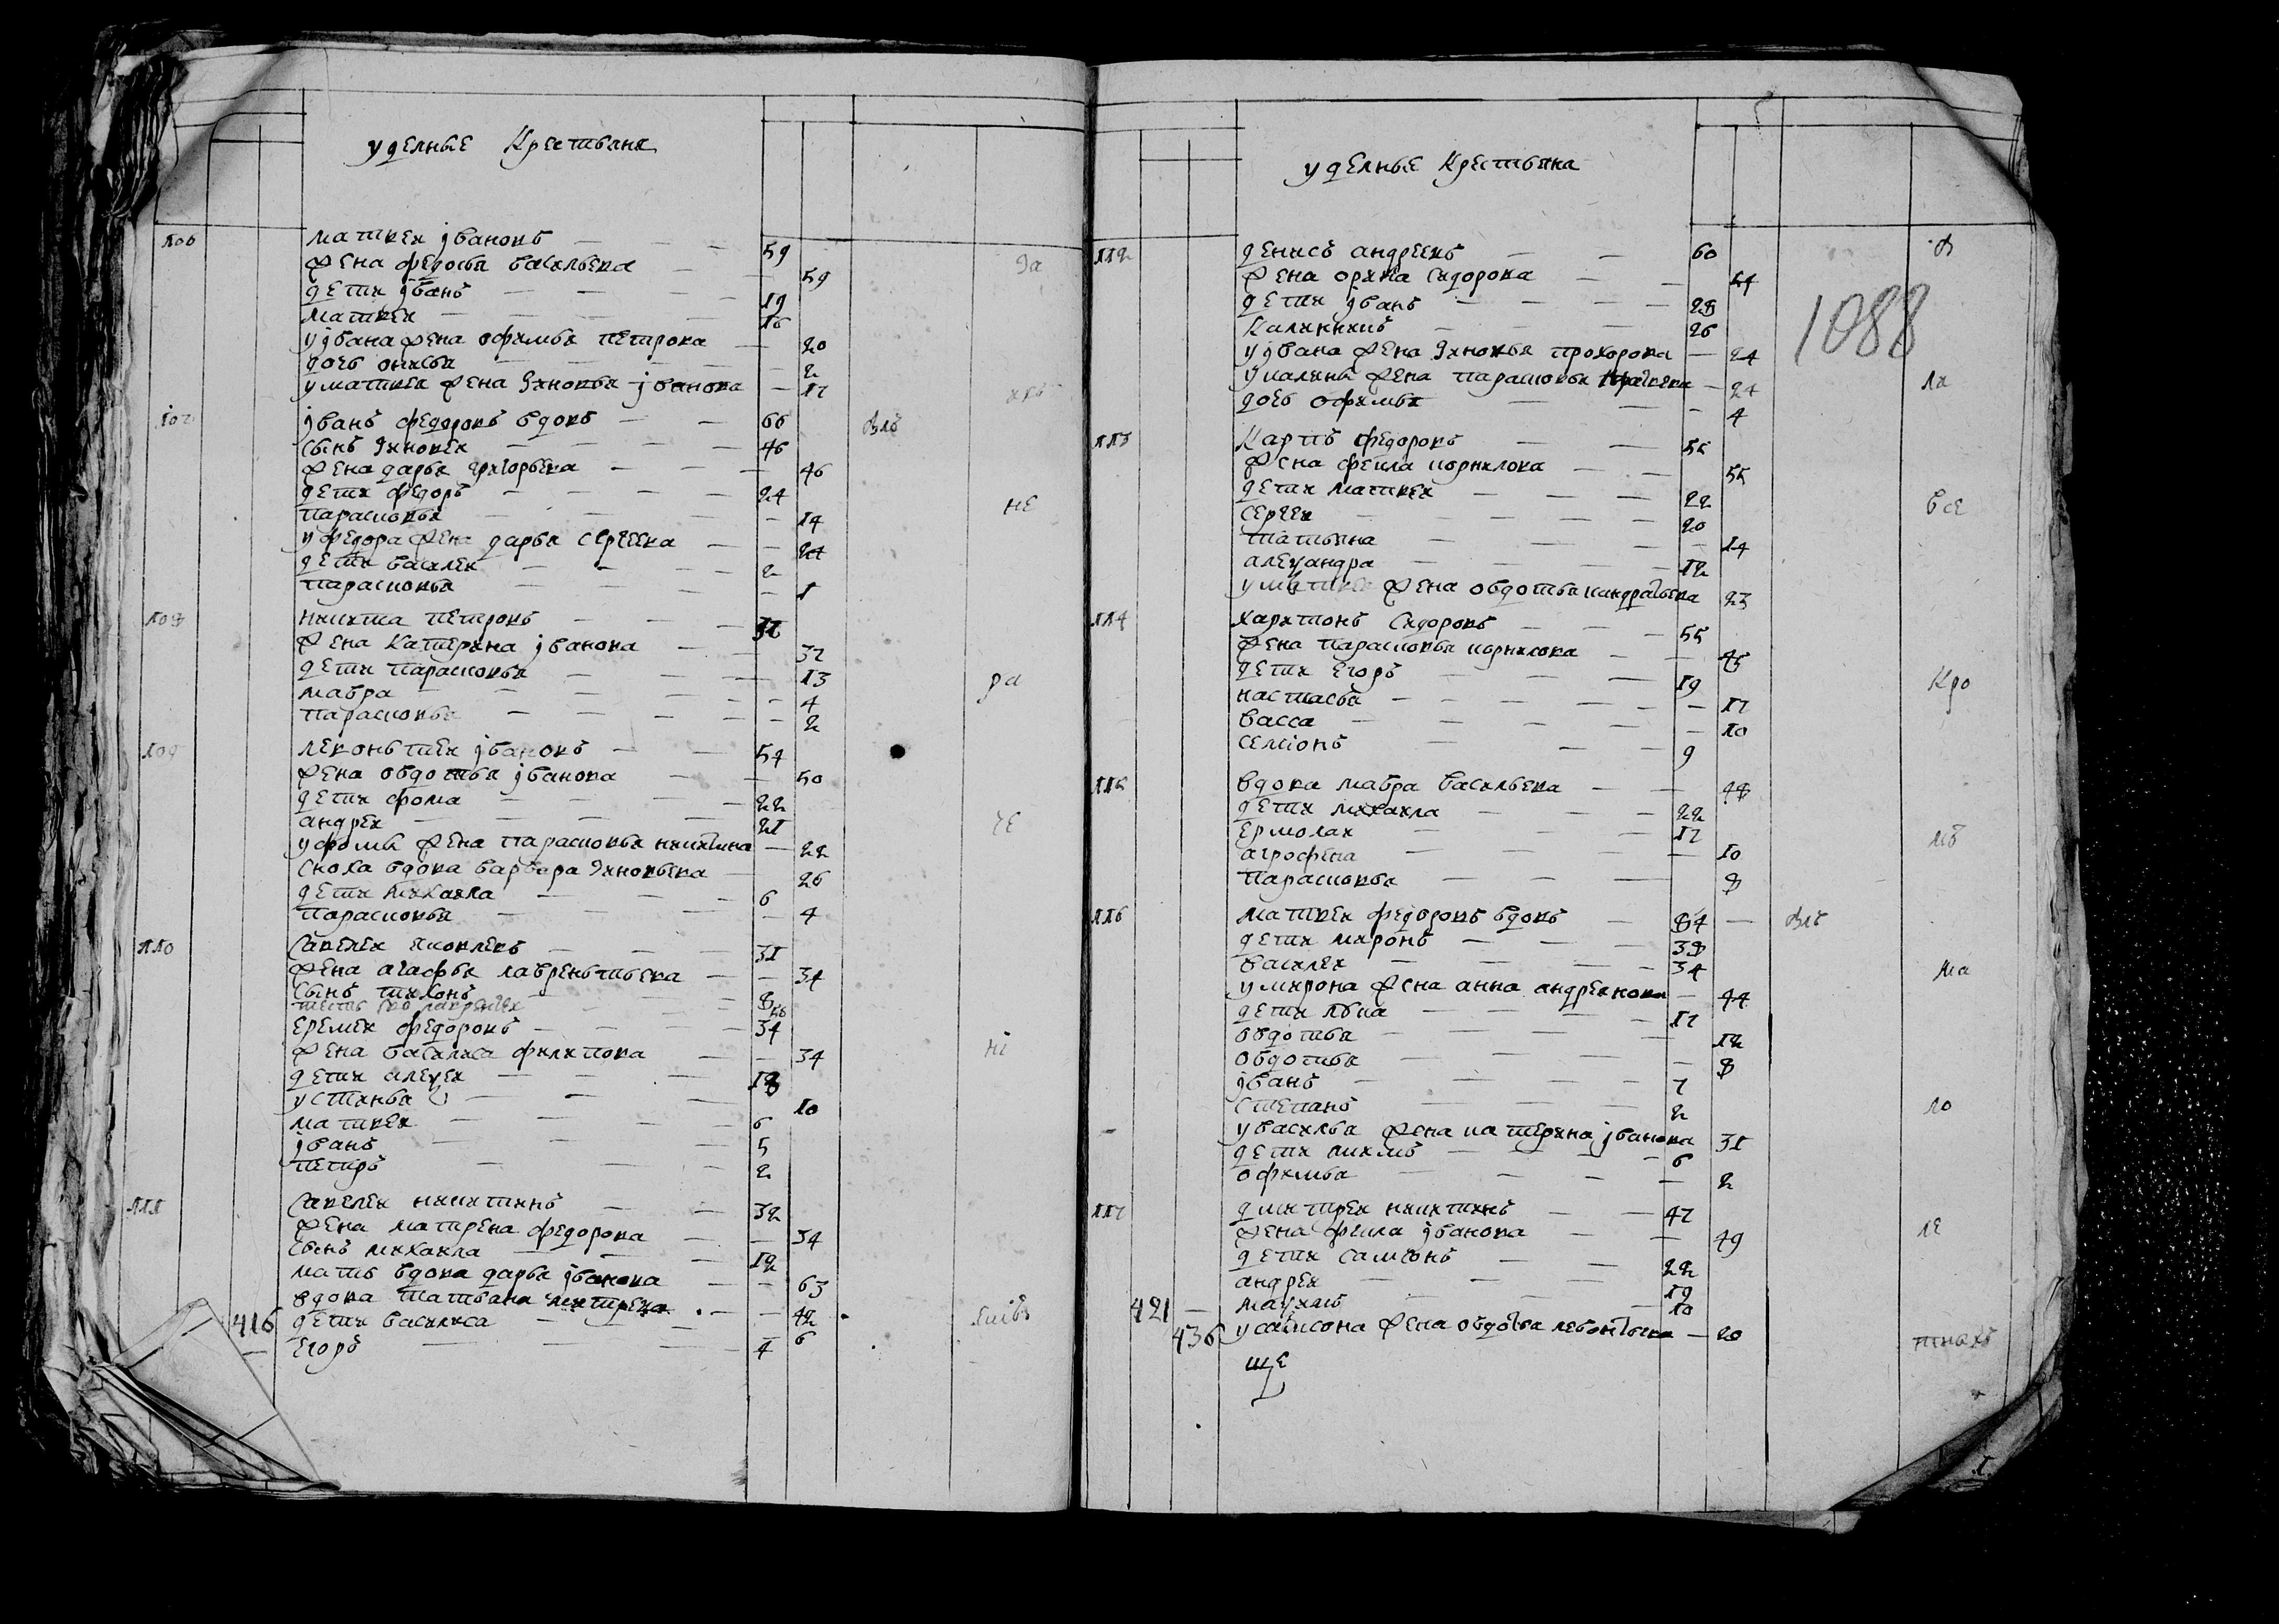 уделные Крестьяна
106 матвей јвановъ 59
жена федосья васильева 59
дети јванъ 19
матвей 16
у јвана жена офимья петрова 20
дочь онисья 2
у матвея жена зиновья јванова 17
107 јванъ федоровъ вдовъ 66
сынъ зиновей 46
жена дарья григорьева 46
дети федоръ 24
парасковья 14
у федора жена дарья сергеева 24
дети василей 2
парасковья 1
108 никита петровъ
жена катерина јванова 37
дети парасковья 13
мавра 4
парасковья 2
109 левонътей јвановъ 54
жена овдотья јванова 50
дети фома 22
андрей 21
у фомы жена парасковья никитина 22
сноха вдова варвара зиновьева 26
дети михаила 6
парасковья 4
110 савелей яковлевъ 31
жена агафья лавренътьева 34
сынъ тихонъ 8
еремей федоровъ 34
жена василиса филипова 34
дети алексей 18
устинья 10
матвей 6
јванъ 5
петръ 2
111 савелей никитинъ 32
жена матрена федорова 34
сынъ михаила 12
мать вдова дарья јванова 63
вдова татьяна 42
416 дети василиса 6
егоръ 4
уделные Крестьяна
1088
112 денисъ андреевъ 60
жена орина сидорова 54
дети јванъ 28
калиникъ 26
у јвана жена зиновья прохорова 24
у калины жена парасковья 24
дочь офимья 4
113 карпъ федоровъ 55
жена фекла корнилова 55
дети матвей 22
сергей 20
татьяна 14
александра 12
у матвея жена овдотья кондратьева 23
114 харитонъ сидоровъ 55
жена парасковья корнилова 45
дети егоръ 19
настасья 17
васса 10
семионъ 9
115 вдова мавра васильева 48
дети михаила 22
ермолай 17
агрофена 10
парасковья 8
116 матвей федоровъ вдовъ 84
дети миронъ 38
василей 34
у мирона жена анна андреянова 44
дети 17
овдотья 12
овдотья 8
јванъ 7
степанъ 2
у василья жена катерина јванова 31
дети акимъ 6
офимья 2
117 дмитрей никитинъ 47
жена фекла јванова 49
дети самсонъ 22
андрей 19
421 максимъ 10
436 у самсона жена овдотья левонтьева 20